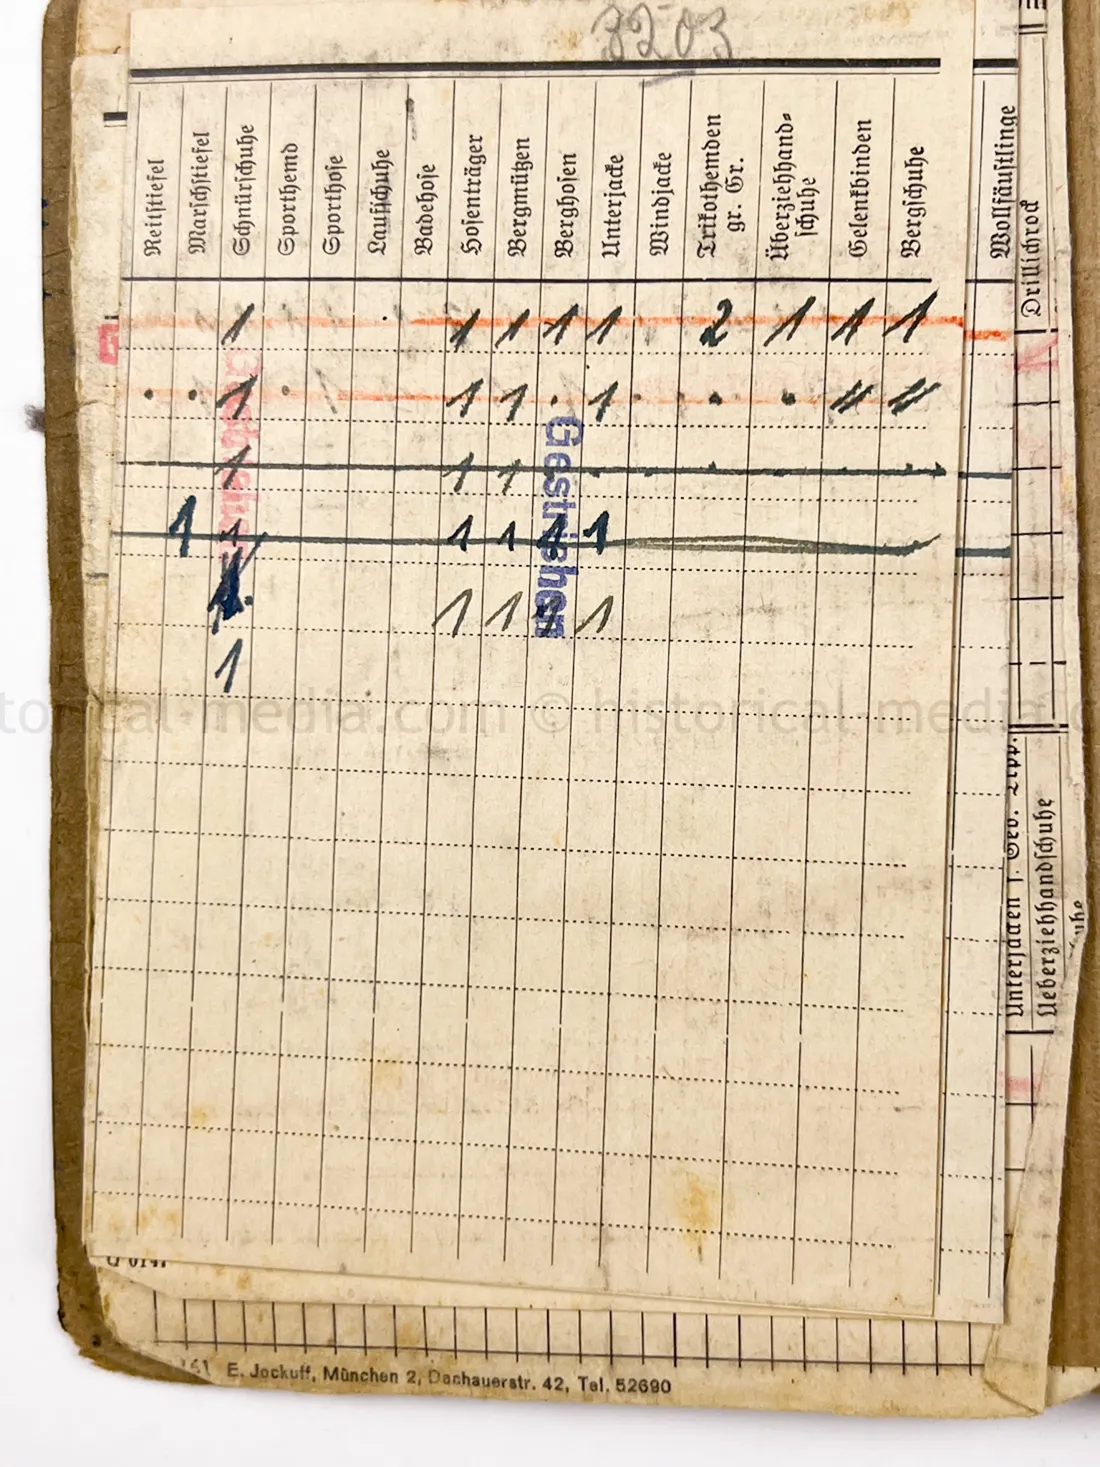 3203
Reitstiefel
Marschstiefel
Schnürschuhe
Sporthemd
Sporthose
Laufschuhe
Badehose
Hosenträger
Bergmützen
Berghosen
Unterjacke
Windjacke
Trikothemden
gr. Gr.
Überziehhand=
schuhe
Gelenkbinden
Bergschuhe
Wollfäustlinge
Drillichrock
1 1 1 1 1 2 1 1 1
1 1 1 1
1 1 1
1 1 1 1 1 1
1 1 1 1
1
Gestrichen
historical-media.com © historical-media
Unterjacken
Ueberziehhandschuhe
E. Jockuff, München 2, Dachauerstr. 42, Tel. 52690